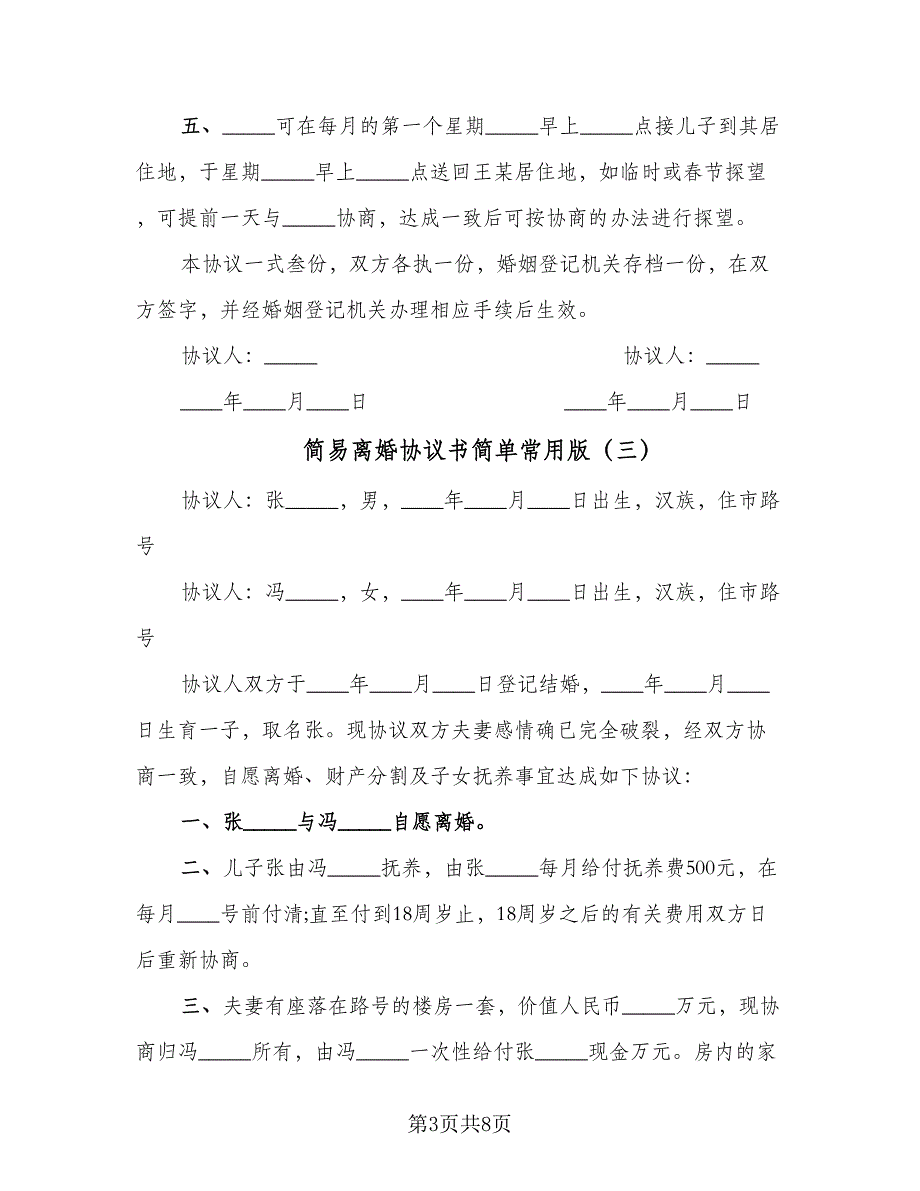 五、_____可在每月的第一个星期_____早上_____点接儿子到其居
住地，于星期_____早上_____点送回王某居住地，如临时或春节探望
，可提前一天与_____协商，达成一致后可按协商的办法进行探望。
本协议一式叁份，双方各执一份，婚姻登记机关存档一份，在双
方签字，并经婚姻登记机关办理相应手续后生效。
协议人：_____ 协议人：_____
____年____月____日 ____年____月____日
简易离婚协议书简单常用版（三）
协议人：张_____，男，____年____月____日出生，汉族，住市路
号
协议人：冯_____，女，____年____月____日出生，汉族，住市路
号
协议人双方于____年____月____日登记结婚，____年____月____
日生育一子，取名张。现协议双方夫妻感情确已完全破裂，经双方协
商一致，自愿离婚、财产分割及子女抚养事宜达成如下协议：
一、张_____与冯_____自愿离婚。
二、儿子张由冯_____抚养，由张_____每月给付抚养费500元，在
每月____号前付清;直至付到18周岁止，18周岁之后的有关费用双方日
后重新协商。
三、夫妻有座落在路号的楼房一套，价值人民币_____万元，现协
商归冯_____所有，由冯_____一次性给付张_____现金万元。房内的家
第3页共8页